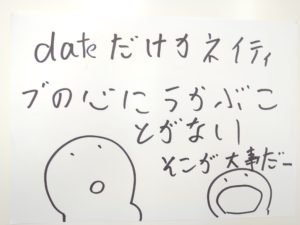 dateだけカネイティ
ブの心にうかぶこ
とがない
そこが大事だー